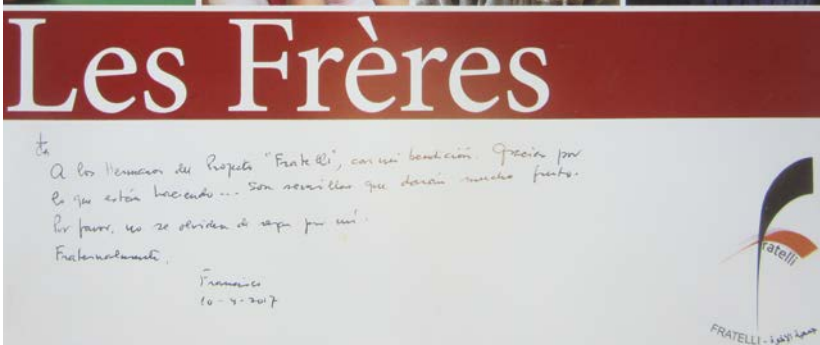 Les Frères
A los Hermanos del Projecto "Fratelli", con mi bendición. Gracias por
lo que están haciendo... Son semillas que darán mucho fruto.
Por favor, no se olviden de rezar por mí.
Fraternalmente,
Francisco
10-4-2017
ratelli
FRATELLI -